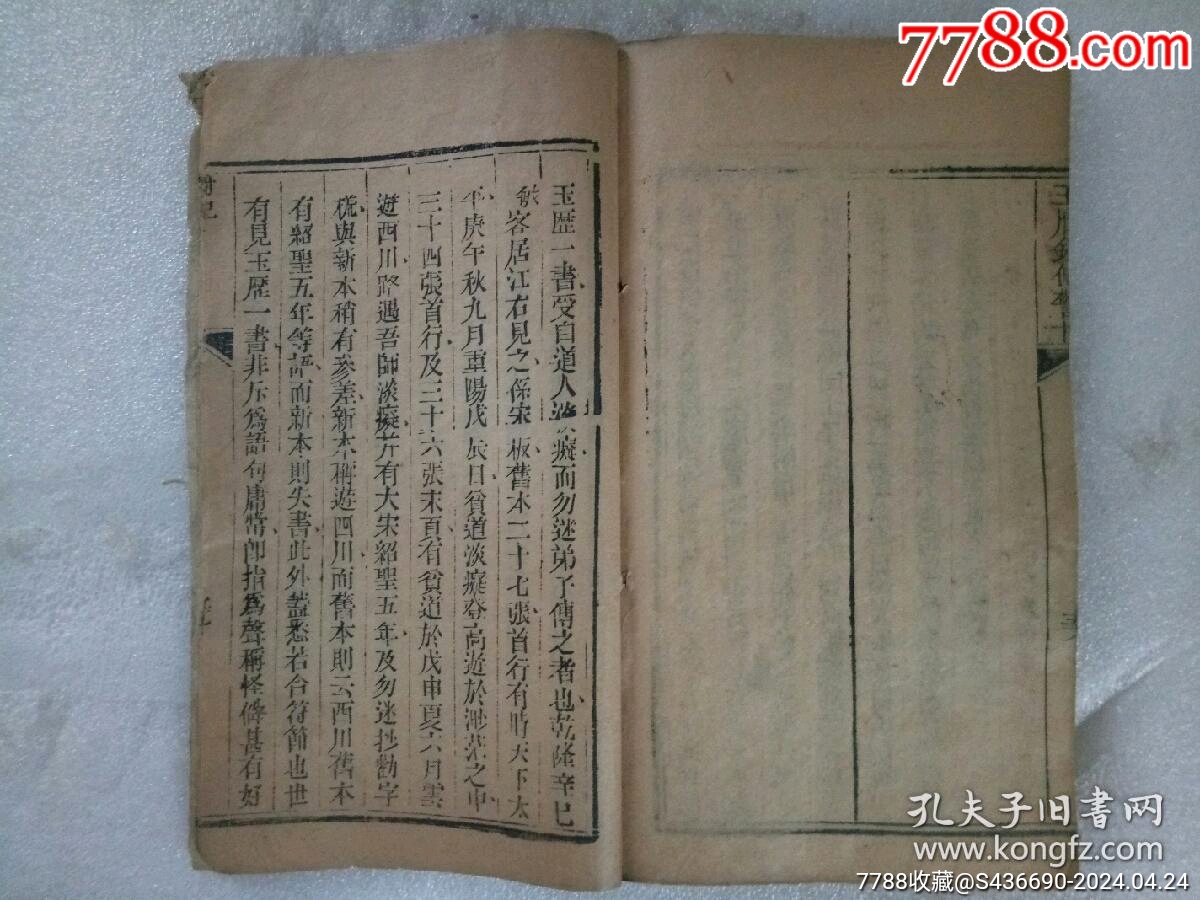 7788.com
玉歷一書受自道人淡癡而勿迷弟子傳之者也乾隆辛巳
客居江右見之係宋板舊本二十七張首行有時天下太
平庚午秋九月重陽戊辰日貧道淡癡登高遊於渺茫之中
三十四張首行及三十六張末頁有貧道於戊申夏六月雲
遊西川路遇吾師淡癡并有大宋紹聖五年及勿迷抄勸字
樣與新本稍有參差新本稱遊四川而舊本則云西川舊本
有紹聖五年等語而新本則失書此外蓋悉若合符節也世
有見玉歷一書非斥為語句庸常卽指為聲稱怪僻甚有好
附記
玉歷鈔傳警
孔夫子旧書网
www.kongfz.com
7788收藏@S436690-2024.04.24